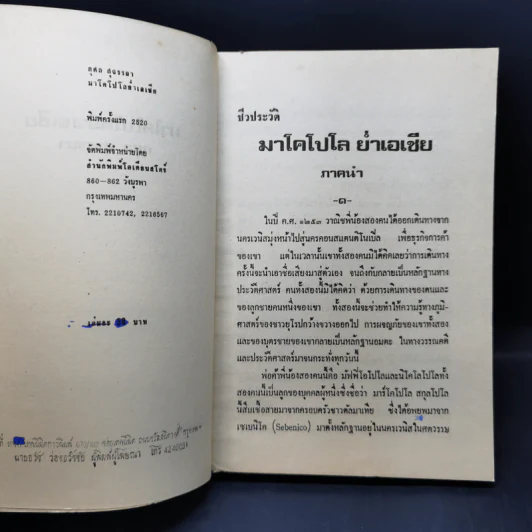 กุศล สุจรรยา
มาโคโปโลย่ำเอเซีย
พิมพ์ครั้งแรก 2520
จัดพิมพ์จำหน่ายโดย
สำนักพิมพ์โอเดียนสโตร์
860–862 วังบูรพา
กรุงเทพมหานคร
โทร. 2210742, 2216567
เล่มละ บาท
ชีวประวัติ
มาโคโปโล ย่ำเอเซีย
ภาคนำ
–๑–
ในปี ค.ศ. ๑๒๕๓ วาณิชพี่น้องสองคนได้ออกเดินทางจาก
นครเวนิสมุ่งหน้าไปสู่นครคอนสแตนติโนเปิ้ล เพื่อธุรกิจการค้า
ของเขา แต่ในเวลานั้นเขาทั้งสองคนมิได้คิดเลยว่าการเดินทาง
ครั้งนี้จะนำเอาชื่อเสียงมาสู่ตัวเอง จนถึงกับกลายเป็นหลักฐานทาง
ประวัติศาสตร์ คนทั้งสองนี้มิได้คิดว่า ด้วยการเดินทางของตนและ
ของลูกชายคนหนึ่งของเขา ทั้งสองนี้จะช่วยทำให้ความรู้ทางภูมิ-
ศาสตร์ของชาวยุโรปกว้างขวางออกไป การผจญภัยของเขาทั้งสอง
และของบุตรชายของเขากลายเป็นหลักฐานอมตะ ในทางวรรณคดี
และประวัติศาสตร์มาจนกระทั่งทุกวันนี้
พ่อค้าพี่น้องสองคนนี้คือ มัฟฟีโอโปโลและนิโคโลโปโลทั้ง
สองคนนี้เป็นลูกของบุคคลผู้หนึ่งซึ่งชื่อว่า มาร์โคโปโล สกุลโปโล
นี้สืบเชื้อสายมาจากครอบครัวชาวดัลมาเทีย ซึ่งได้อพยพมาจาก
เซเบนิโค (Sebenico) มาตั้งหลักฐานอยู่ในนครเวนิสในศตวรรษ